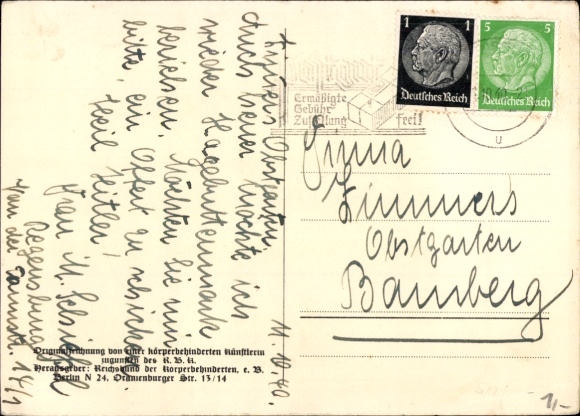 11. 10. 40.
Zimmers Obstgarten,
Auch heuer möchte ich
wieder Hagebuttenmark
beziehen. Möchten Sie mir
bitte, ein Offert zu schicken.
Heil Hitler!
Frau M.
Regensburg
Von der Tannstr.
1
Deutsches Reich
5
Deutsches Reich
Ermäßigte
Gebühr
Zustellung frei!
u
Firma
Zimmers
Obstgarten
Bamberg
Originalzeichnung von einer körperbehinderten Künstlerin
zugunsten des R. B. K.
Herausgeber: Reichsbund der Körperbehinderten, e. V.
Berlin N 24, Oranienburger Str. 13/14
1,-